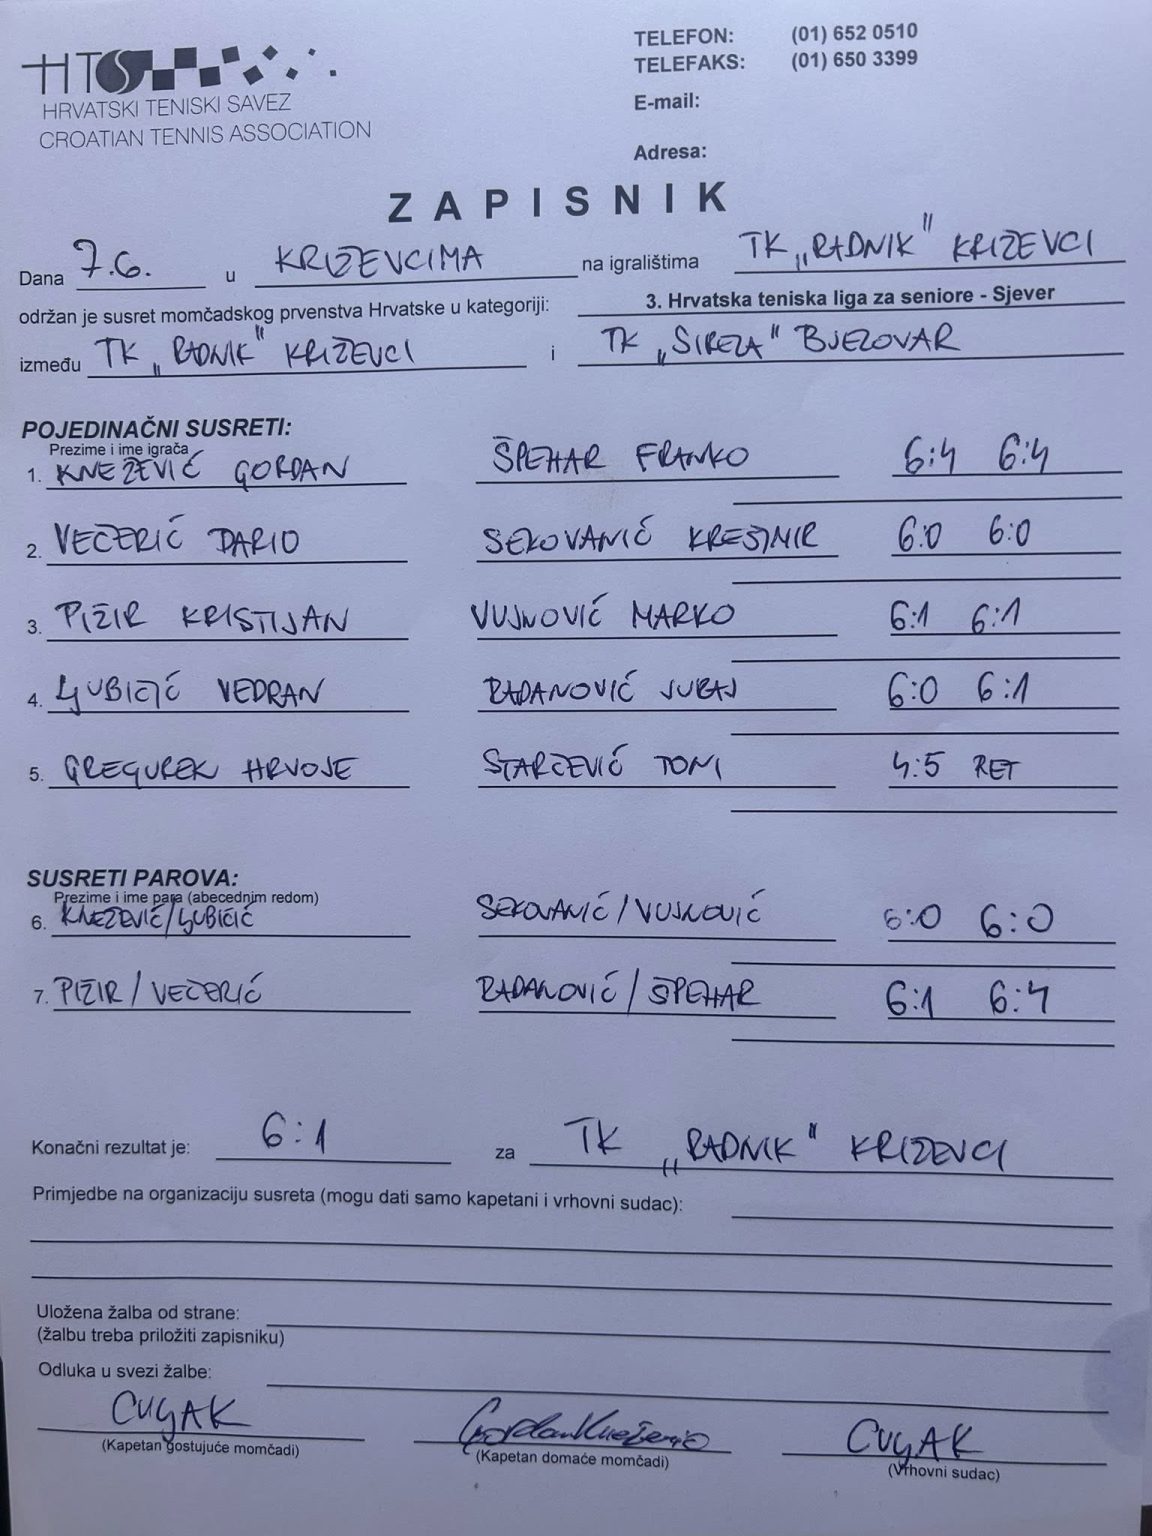 HTS
HRVATSKI TENISKI SAVEZ
CROATIAN TENNIS ASSOCIATION
TELEFON: (01) 652 0510
TELEFAKS: (01) 650 3399
E-mail:
Adresa:
ZAPISNIK
Dana 7.6. u KRIŽEVCIMA na igralištima TK „RADNIK" KRIŽEVCI
održan je susret momčadskog prvenstva Hrvatske u kategoriji: 3. Hrvatska teniska liga za seniore - Sjever
između TK „RADNIK" KRIŽEVCI i TK „SIRELA" BJELOVAR
POJEDINAČNI SUSRETI:
Prezime i ime igrača
1. KNEŽEVIĆ GORDAN ŠPEHAR FRANKO 6:4 6:4
2. VEČERIĆ DARIO SEKOVANIĆ KREŠIMIR 6:0 6:0
3. PIŽIR KRISTIJAN VUJNOVIĆ MARKO 6:1 6:1
4. LJUBIČIĆ VEDRAN RADANOVIĆ JURAJ 6:0 6:1
5. GREGUREK HRVOJE STARČEVIĆ TONI 4:5 RET
SUSRETI PAROVA:
Prezime i ime para (abecednim redom)
6. KNEŽEVIĆ/LJUBIČIĆ SEKOVANIĆ/VUJNOVIĆ 6:0 6:0
7. PIŽIR/VEČERIĆ RADANOVIĆ/ŠPEHAR 6:1 6:4
Konačni rezultat je: 6:1 za TK „RADNIK" KRIŽEVCI
Primjedbe na organizaciju susreta (mogu dati samo kapetani i vrhovni sudac):
Uložena žalba od strane:
(žalbu treba priložiti zapisniku)
Odluka u svezi žalbe:
CUGAK Gordan Knežević CUGAK
(Kapetan gostujuće momčadi) (Kapetan domaće momčadi) (Vrhovni sudac)